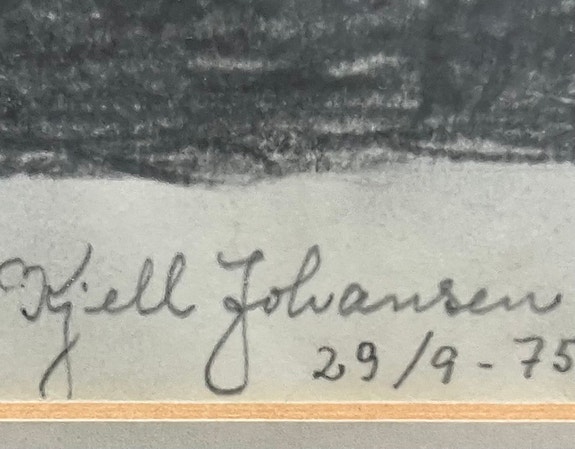 Kjell Johansen
29/9-75